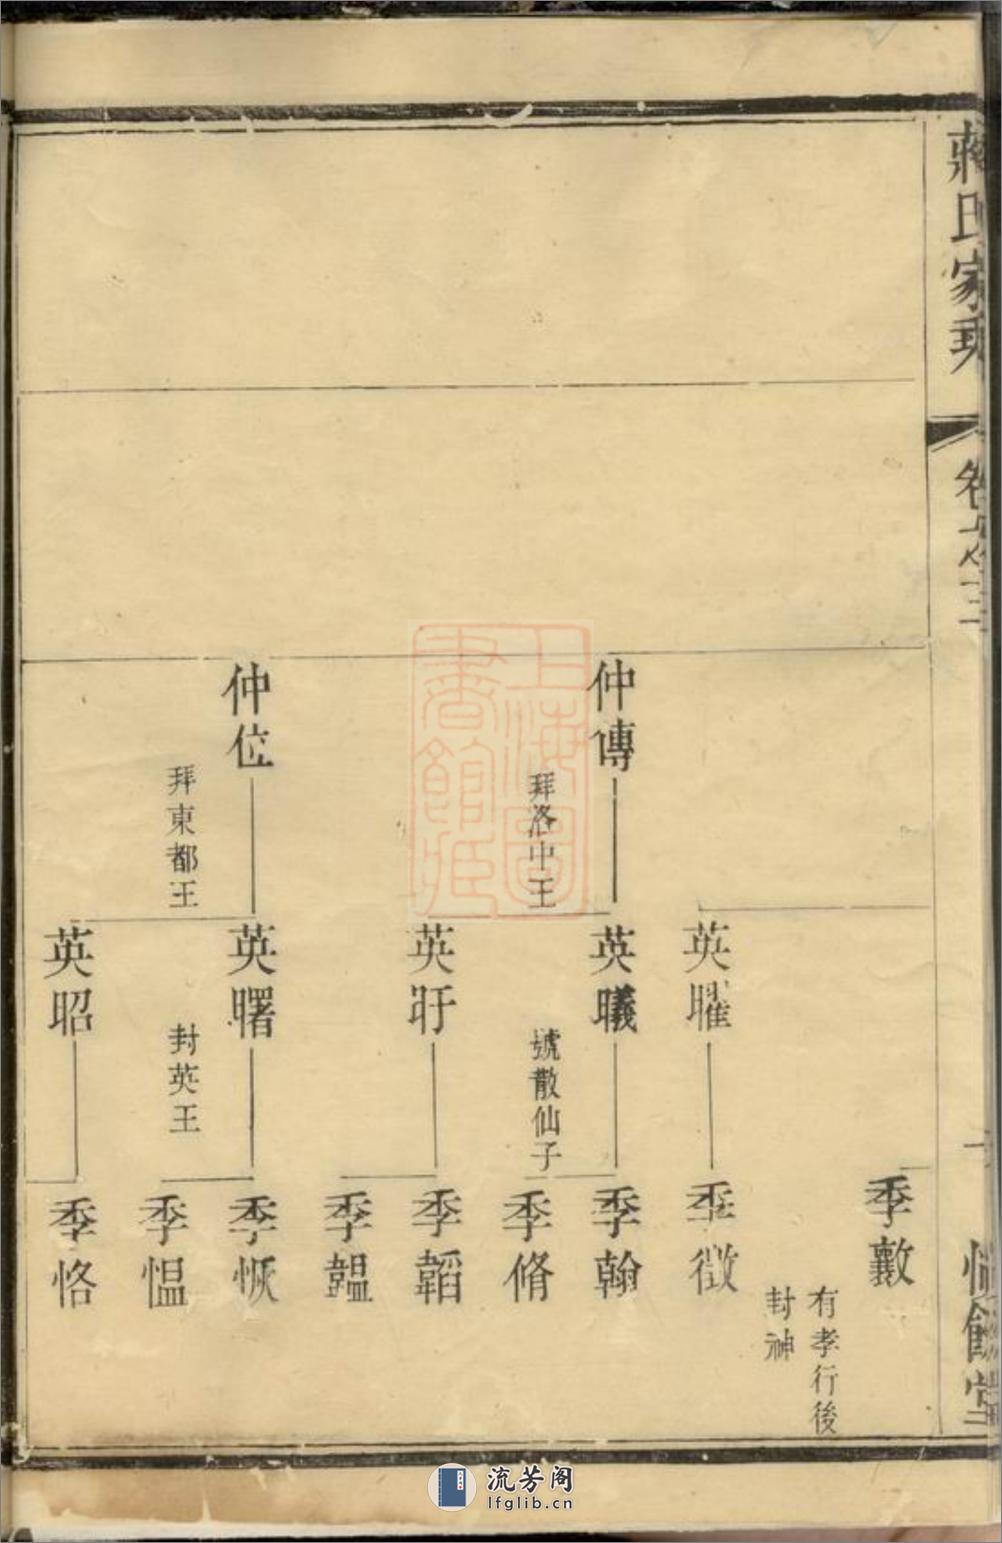 蔣氏家乘
卷之三
仲傳
拜洛中王
仲位
拜東都王
英曜
英曦
號散仙子
英盱
英曙
封英王
英昭
季斅
有孝行後
封神
季徵
季翰
季脩
季韜
季韞
季恢
季愠
季恪
上海圖
書館藏
流芳阁
lfglib.cn